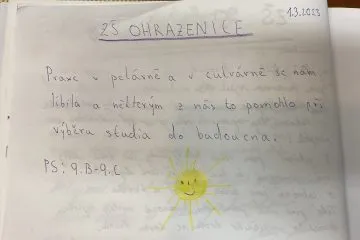 1.3.2023
ZŠ OHRAZENICE
Praxe v pekárně a v cukrárně se nám
líbila a některým z nás to pomohlo při
výběru studia do budoucna.
PS: 9.B-9.C